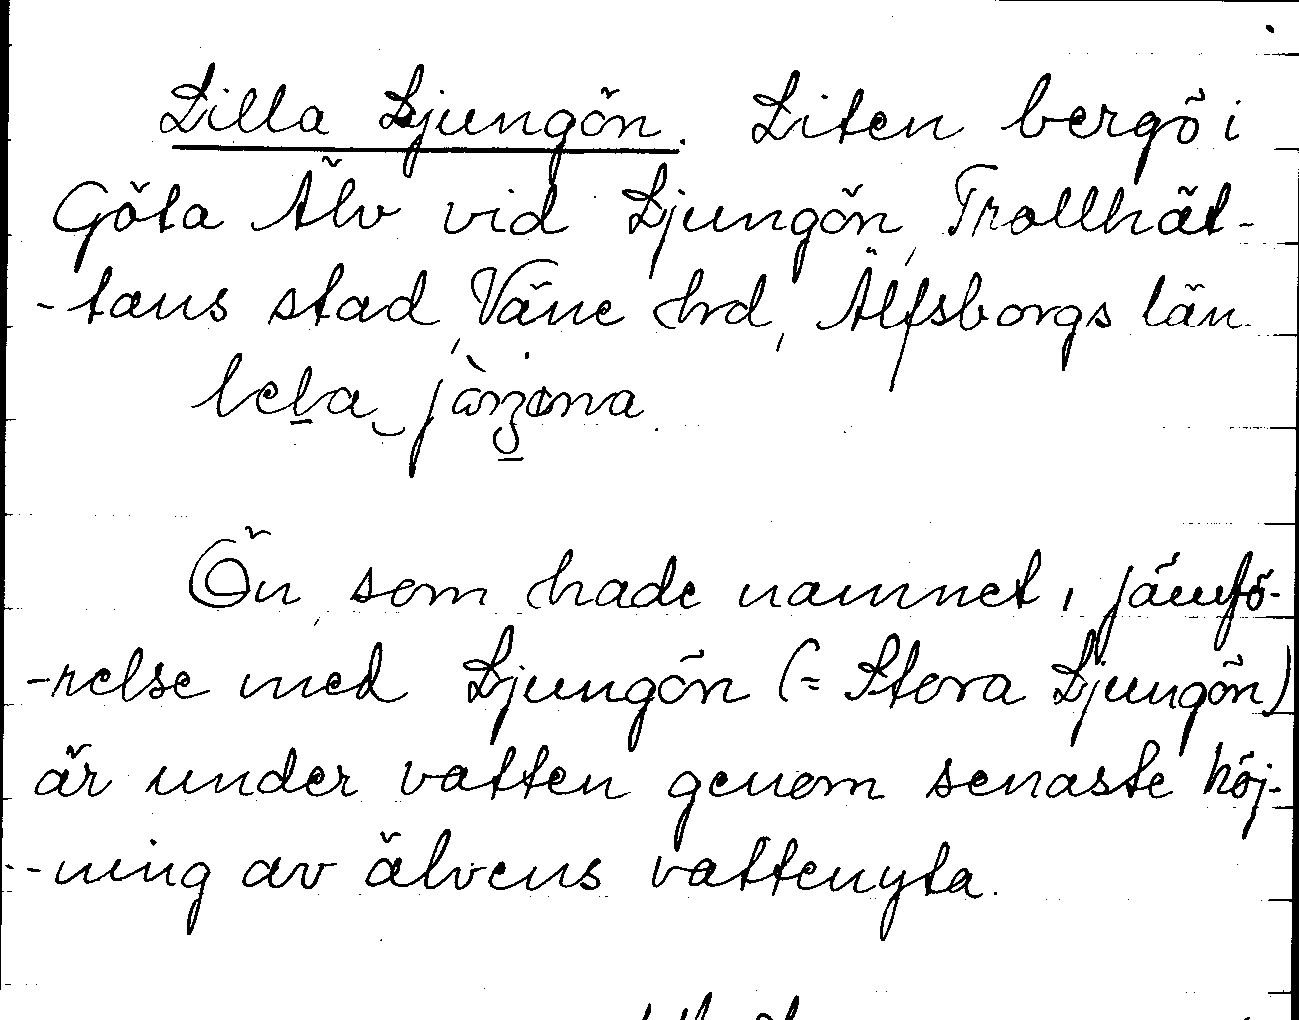 Lilla Ljungön. Liten bergö i
Göta Älv vid Ljungön, Trollhät-
-tans stad, Väne hrd, Älfsborgs län.
Ön, som hade namnet i jämfö-
-relse med Ljungön (= Stora Ljungön)
är under vatten genom senaste höj-
-ning av älvens vattenyta.